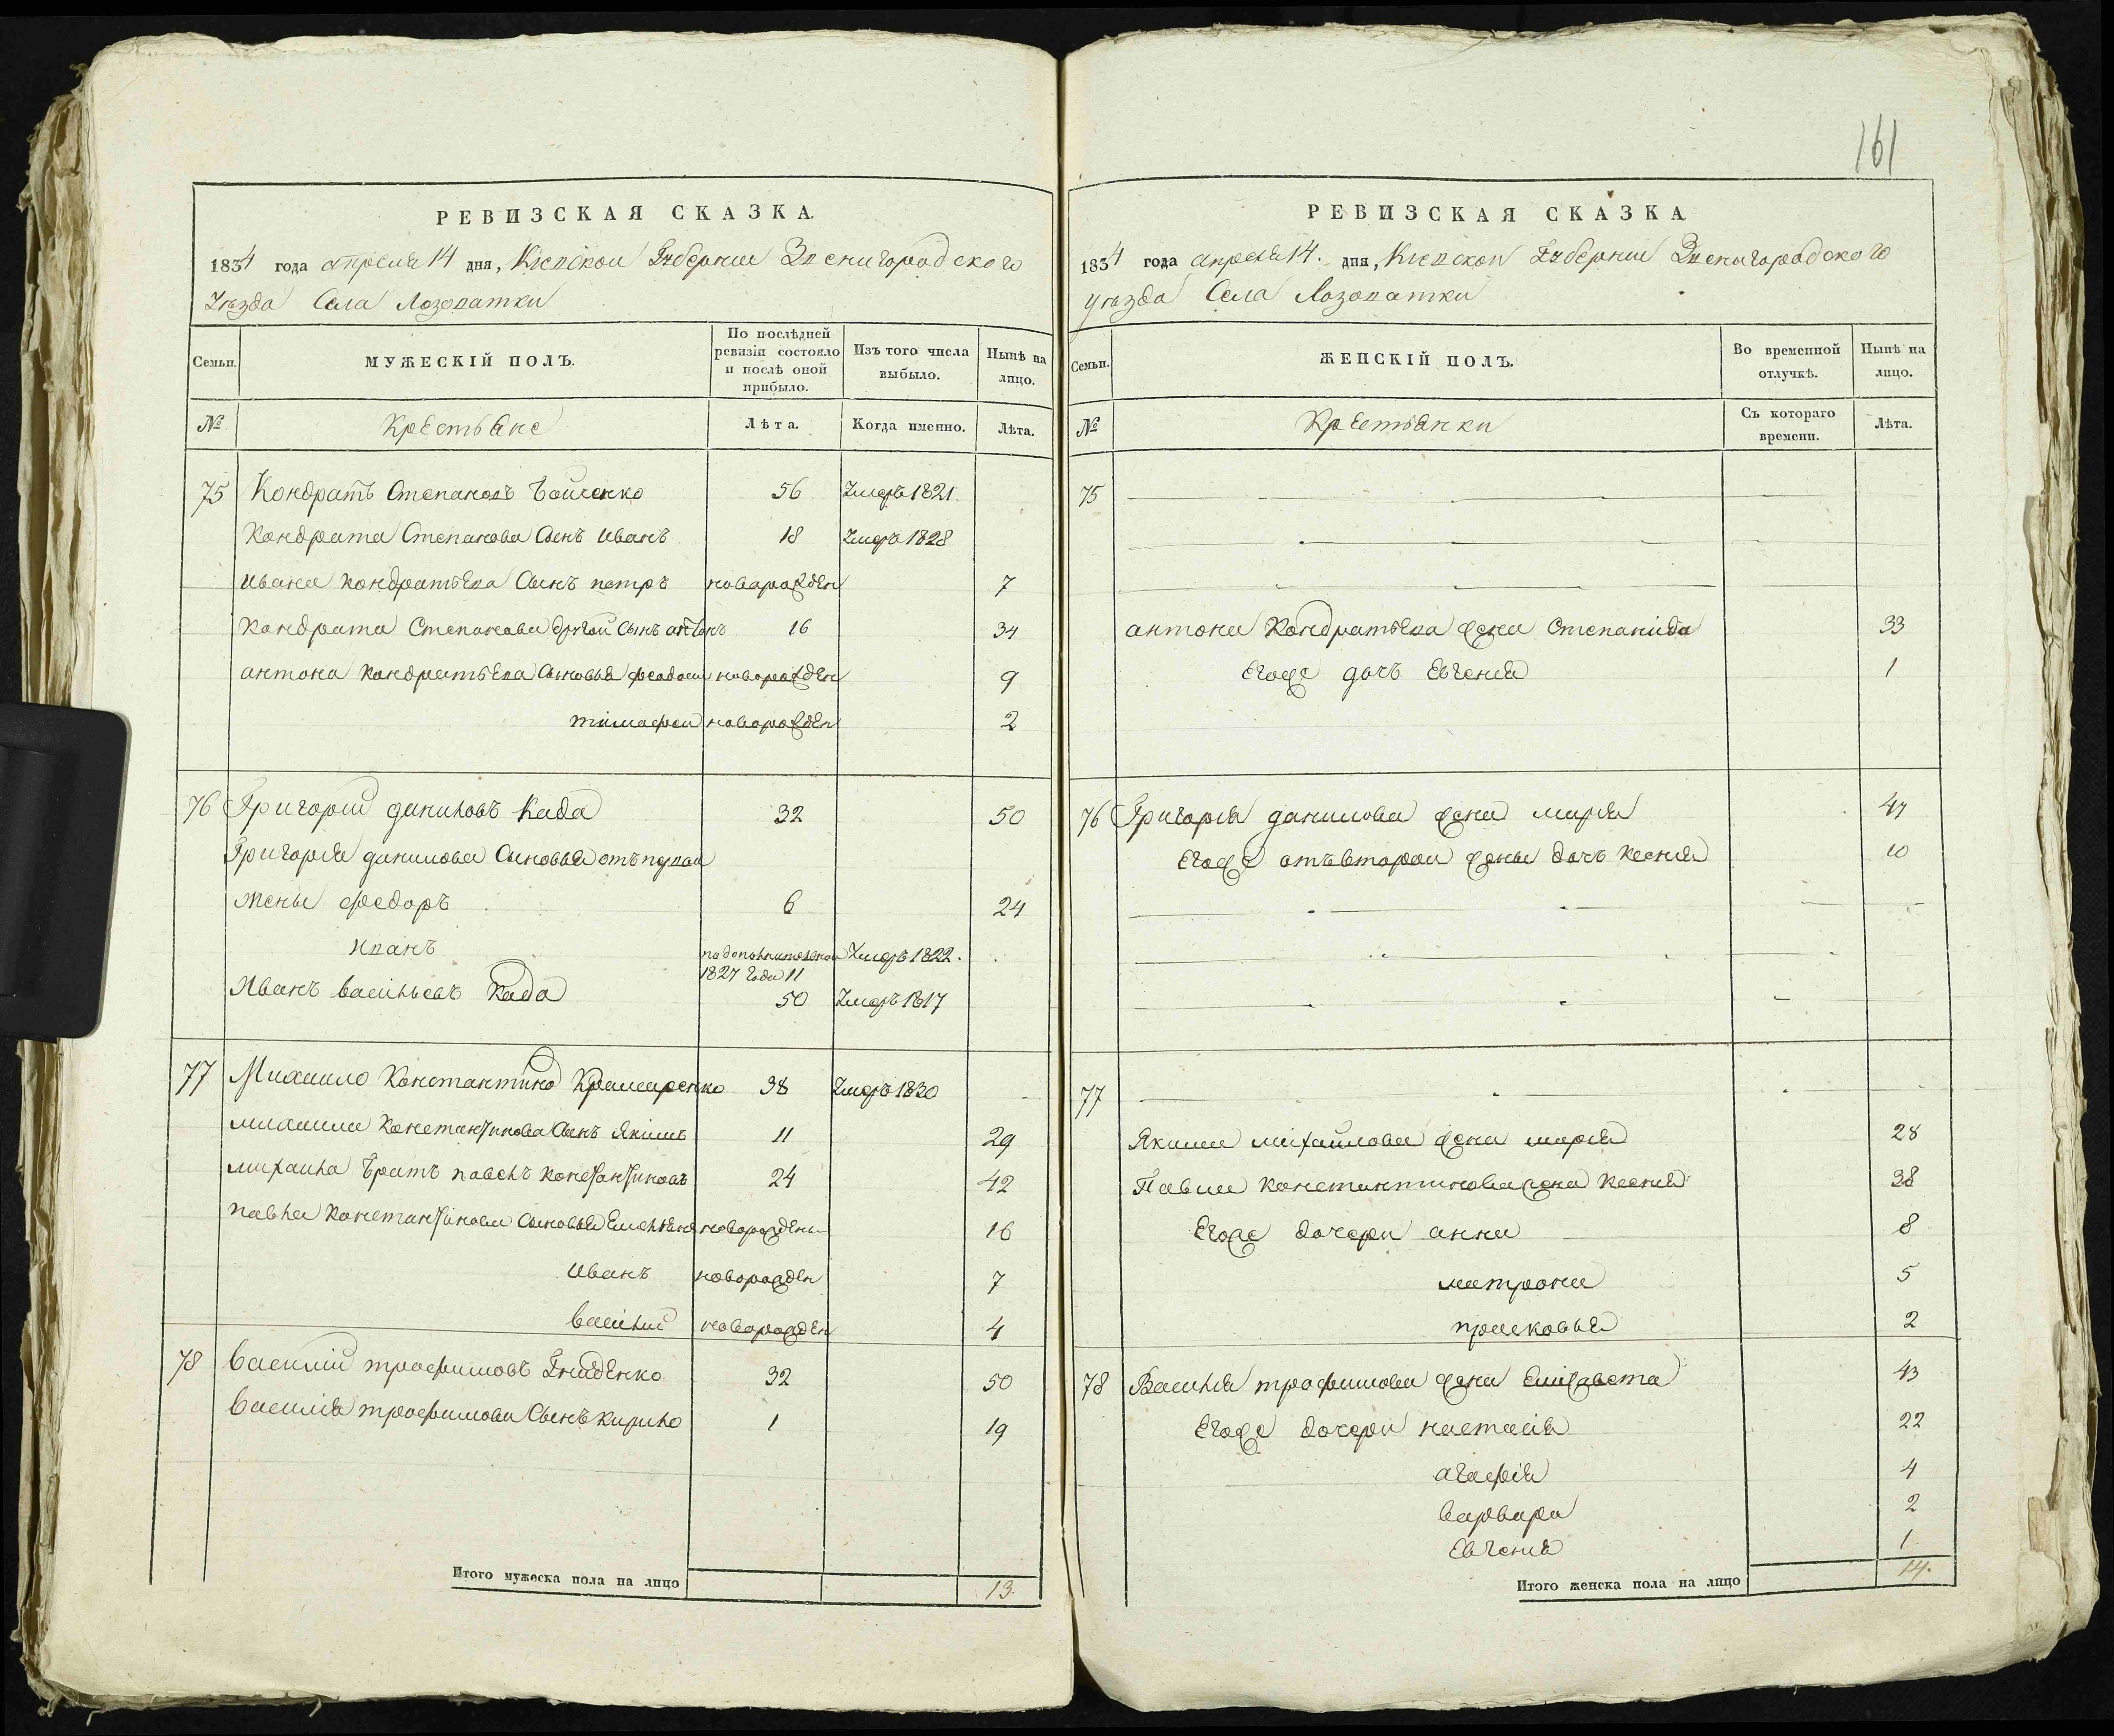 161
РЕВИЗСКАЯ СКАЗКА.
1834 года апреля 14 дня, Киевской Губернии Звенигородского
Уезда Села Лозоватки
Семьи. МУЖЕСКІЙ ПОЛЪ. По послѣдней ревизіи состояло и послѣ оной прибыло. Изъ того числа выбыло. Нынѣ на лицо.
№ Крестьяне Лѣта. Когда именно. Лѣта.
75 Кондратъ Степановъ 56 Умеръ 1821.
Кондрата Степанова Сынъ Иванъ 18 Умеръ 1828
Ивана Кондратьева Сынъ петръ новорожден 7
Кондрата Степанова другой Сынъ антонъ 16 34
антона Кондратьева Сыновья феодосий новорожден 9
тимофей новорожден 2
76 Григорий даниловъ Када 32 50
Григорія данилова Сыновья отъ первой
жены федоръ 6 24
Иванъ по дополнительной 1827 года 11 Умеръ 1822.
Иванъ васильевъ Када 50 Умеръ 1817
77 Михаило Константинов Крамаренко 38 Умеръ 1830
михаила Константинова Сынъ Якимъ 11 29
михаила братъ павелъ Константиновъ 24 42
павла Константинова Сыновья Емельянъ новорожденъ 16
Иванъ новорожден 7
василий новорожден 4
78 василий трофимовъ Гниденко 32 50
василія трофимова Сынъ Кирило 1 19
Итого мужеска пола на лицо 13.
РЕВИЗСКАЯ СКАЗКА
1834 года апреля 14. дня, Киевской Губернии Звенигородского
уезда Села Лозоватки
Семьи. ЖЕНСКІЙ ПОЛЪ. Во временной отлучкѣ. Нынѣ на лицо.
№ Крестьянки Съ котораго времени. Лѣта.
75
антона Кондратьева жена Степанида 33
Егоже дочь Евгения 1
76 Григорія данилова жена марія 47
Егоже отъ второй жены дочь Ксения 10
77
Якима михайлова жена марія 28
Павла Константинова жена Ксения 38
Егоже дочери анна 8
матрона 5
прасковья 2
78 Василія трофимова жена Елизавета 43
Егоже дочери настасія 22
агафія 4
варвара 2
Евгения 1
Итого женска пола на лицо 14.